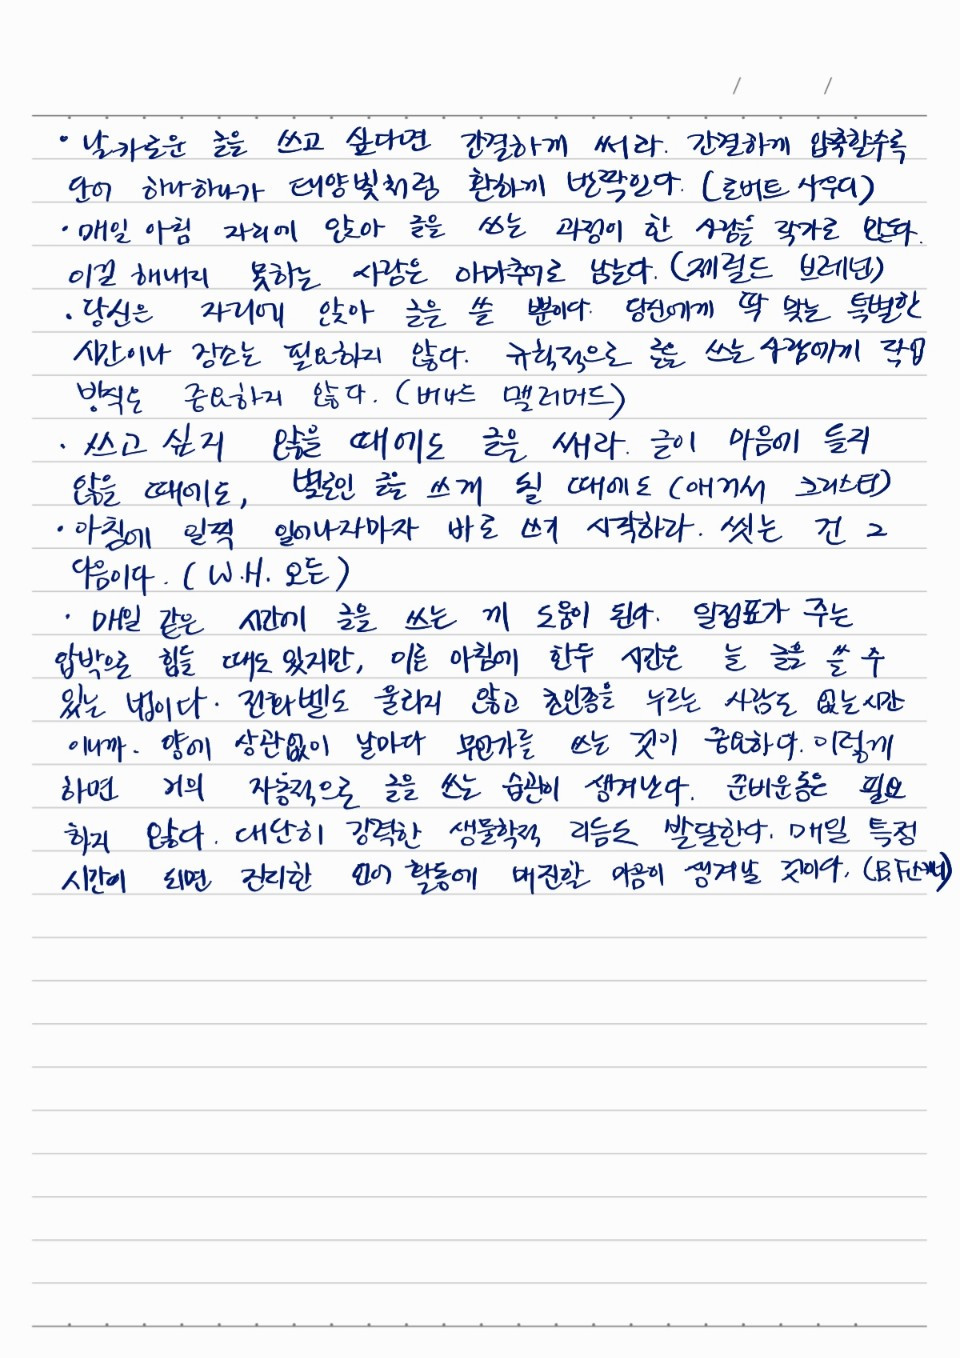 · 날카로운 글을 쓰고 싶다면 간결하게 써라. 간결하게 압축할수록
단어 하나하나가 태양빛처럼 환하게 반짝인다. (로버트 사우디)
· 매일 아침 자리에 앉아 글을 쓰는 과정이 한 사람을 작가로 만든다.
이걸 해내지 못하는 사람은 아마추어로 남는다. (제럴드 브레넌)
· 당신은 자리에 앉아 글을 쓸 뿐이다. 당신에게 딱 맞는 특별한
시간이나 장소는 필요하지 않다. 규칙적으로 글을 쓰는 사람에게 작업
방식은 중요하지 않다. (버나드 맬러머드)
· 쓰고 싶지 않을 때에도 글을 써라. 글이 마음에 들지
않을 때에도, 별로인 글을 쓰게 될 때에도 (애거서 크리스티)
· 아침에 일찍 일어나자마자 바로 쓰기 시작하라. 씻는 건 그
다음이다. (W.H. 오든)
· 매일 같은 시간에 글을 쓰는 게 도움이 된다. 일정표가 주는
압박으로 힘들 때도 있지만, 이른 아침에 한두 시간은 늘 글을 쓸 수
있는 법이다. 전화벨도 울리지 않고 초인종을 누르는 사람도 없는 시간
이니까. 양에 상관없이 날마다 무언가를 쓰는 것이 중요하다. 이렇게
하면 거의 자동적으로 글을 쓰는 습관이 생겨난다. 준비운동은 필요
하지 않다. 대단히 강력한 생물학적 리듬도 발달한다. 매일 특정
시간이 되면 진지한 언어 활동에 매진할 마음이 생겨날 것이다. (B.F.스키너)